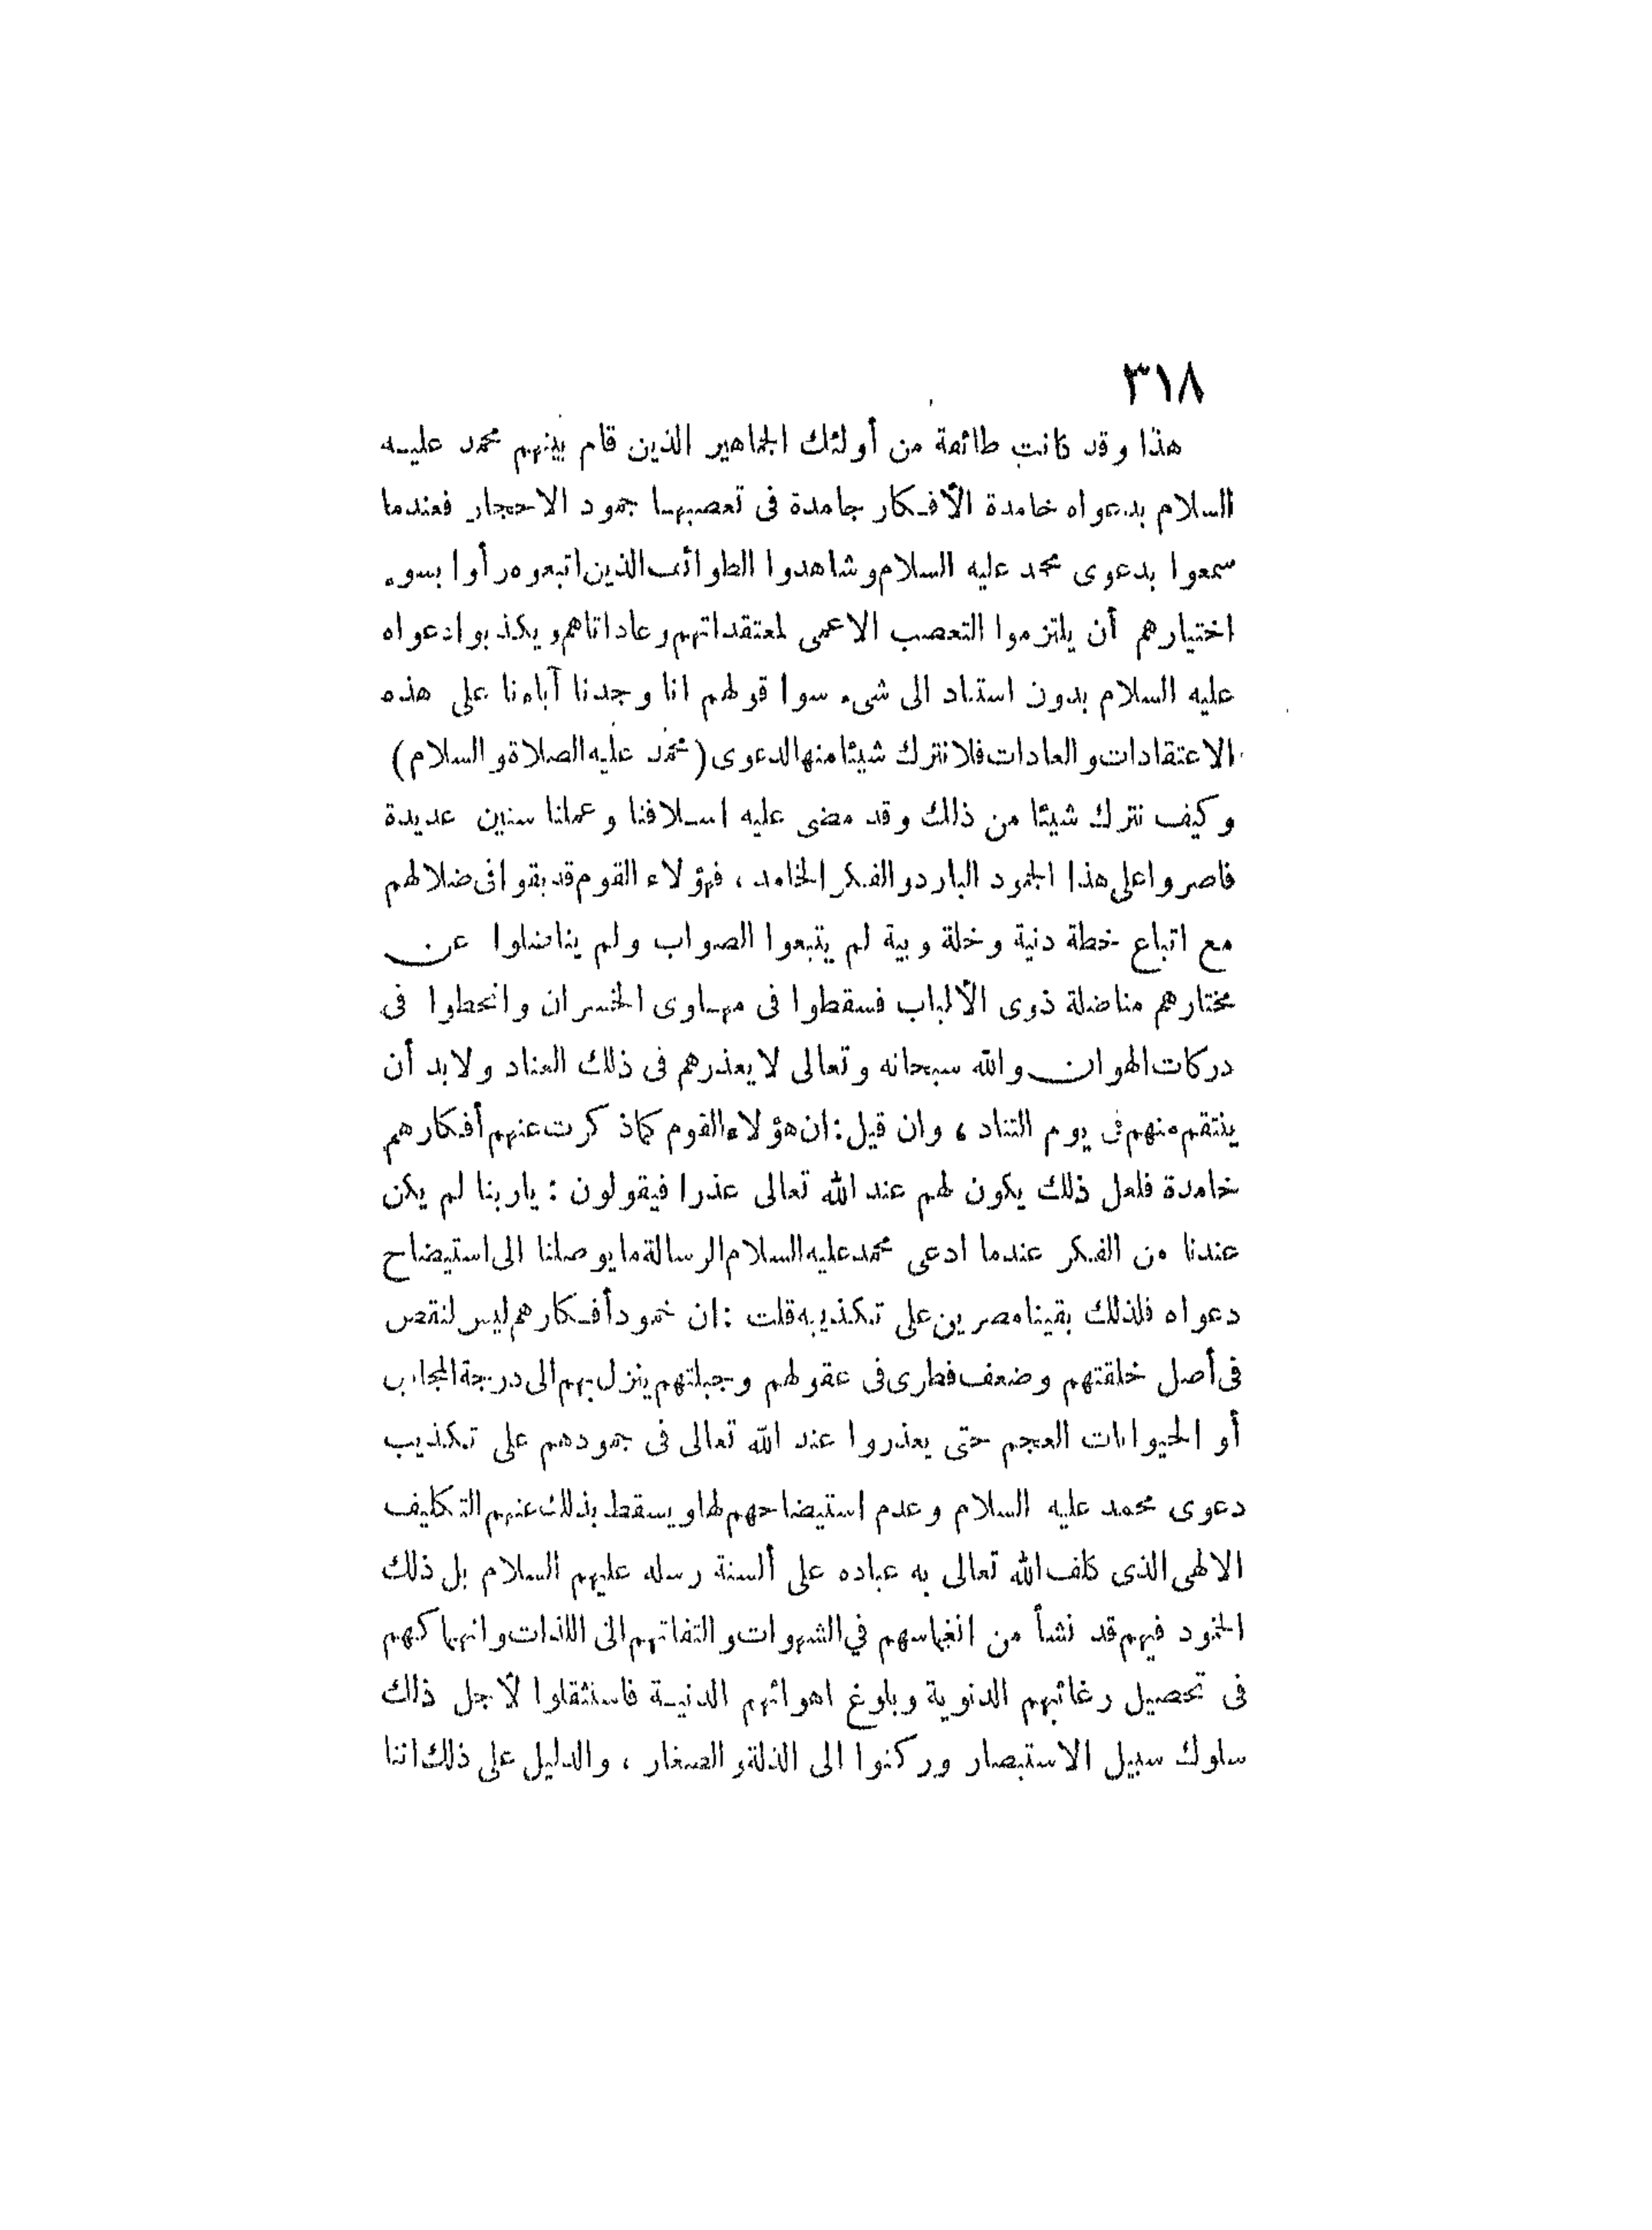 ٣١٨
هذا وقد كانت طائفة من أولئك الجماهير الذين قام بينهم محمد عليه
السلام بدعواه خامدة الأفكار جامدة فى تعصبها جمود الاحجار فعندما
سمعوا بدعوى محمد عليه السلام وشاهدوا الطوائف الذين اتبعوه رأوا بسوء
اختيارهم أن يلتزموا التعصب الاعمى لمعتقداتهم وعاداتاهم ويكذبوا دعواه
عليه السلام بدون استناد الى شىء سوا قولهم انا وجدنا آباءنا على هذه
الاعتقادات والعادات فلا نترك شيئا منها لدعوى (محمد عليه الصلاة والسلام)
وكيف نترك شيئا من ذلك وقد مضى عليه اسلافنا وعملنا سنين عديدة
فاصروا على هذا الجمود البارد والفكر الخامد ، فهؤلاء القوم قد بقوا فى ضلالهم
مع اتباع خطة دنية وخلة وبية لم يتبعوا الصواب ولم يناضلوا عن
مختارهم مناضلة ذوى الألباب فسقطوا فى مهاوى الخسران وانحطوا فى
دركات الهوان والله سبحانه وتعالى لا يعذرهم فى ذلك العناد ولابد أن
ينتقم منهم فى يوم التناد ، وان قيل : ان هؤلاء القوم كما ذكرت عنهم أفكارهم
خامدة فلعل ذلك يكون لهم عند الله تعالى عذرا فيقولون : ياربنا لم يكن
عندنا من الفكر عندما ادعى محمد عليه السلام الرسالة ما يوصلنا الى استيضاح
دعواه فلذلك بقينا مصرين على تكذيبه قلت : ان خمود أفكارهم ليس لنقص
فى أصل خلقتهم وضعف فطرى فى عقولهم وجبلتهم ينزل بهم الى درجة المجانين
أو الحيوانات العجم حتى يعذروا عند الله تعالى فى جمودهم على تكذيب
دعوى محمد عليه السلام وعدم استيضاحهم لها ويسقط بذلك عنهم التكليف
الالهى الذى كلف الله تعالى به عباده على ألسنة رسله عليهم السلام بل ذلك
الخمود فيهم قد نشأ من انغماسهم في الشهوات والتفاتهم الى اللذات وانهماكهم
فى تحصيل رغائبهم الدنوية وبلوغ اهوائهم الدنية فاستثقلوا لأجل ذلك
سلوك سبيل الاستبصار وركنوا الى الذلة والصغار ، والدليل على ذلك اننا